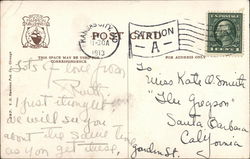 POST CARD
KANSAS CITY
1913
STATION
A
THIS SPACE MAY BE USED FOR
CORRESPONDENCE
FOR ADDRESS ONLY
Lots of love from
Ruth.
I just thought
we will see you
about the same time
as you get these.
To
Miss Kate A. Smith
"The Gregson"
Santa Barbara
California
Garden St.